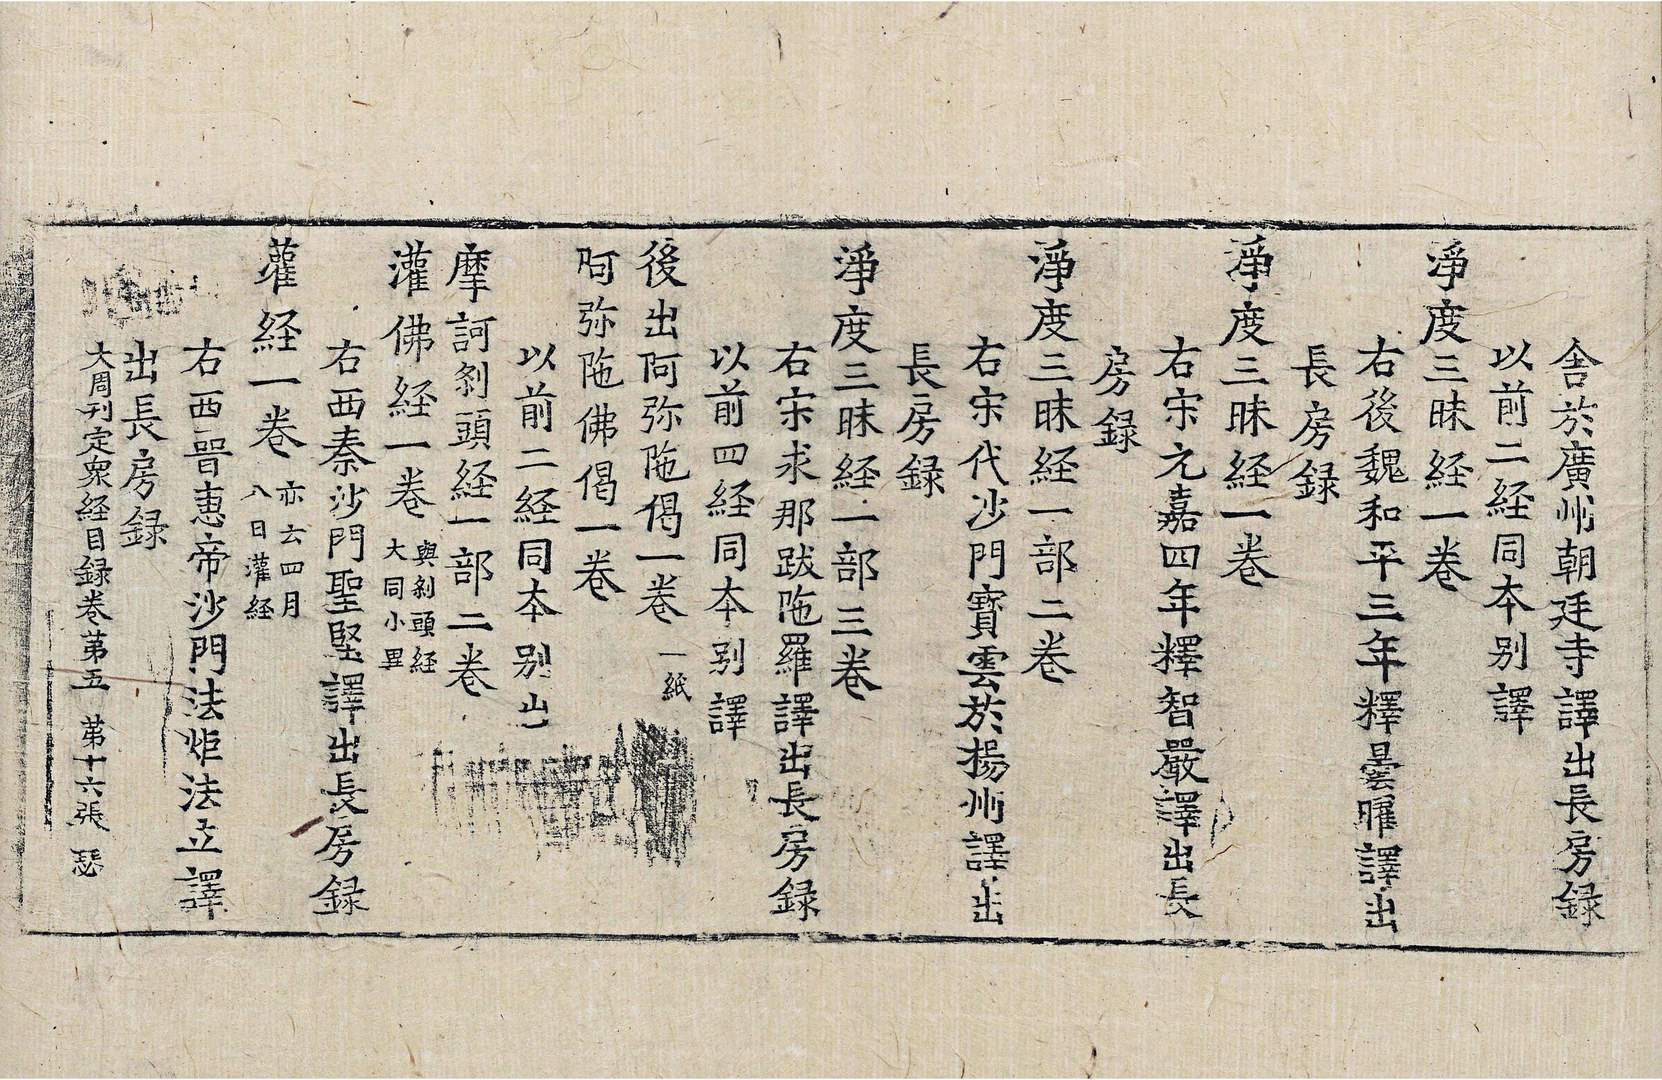 舍於廣州朝廷寺譯出長房録
以前二経同本别譯
淨度三昧経一卷
右後魏和平三年釋曇曜譯出
長房録
淨度三昧経一卷
右宋元嘉四年釋智嚴譯出長
房録
淨度三昧経一部二卷
右宋代沙門寶雲於楊州譯出
長房録
淨度三昧経一部三卷
右宋求那跋陁羅譯出長房録
以前四経同本别譯
後出阿弥陁偈一卷 一紙
阿弥陁佛偈一卷
以前二経同本别出
摩訶剎頭経一部二卷
灌佛経一卷 與剎頭経
大同小異
右西秦沙門聖堅譯出長房録
灌経一卷 亦云四月
八日灌経
右西晉惠帝沙門法炬法立譯
出長房録
大周刊定衆経目録卷第五 第十六張 瑟